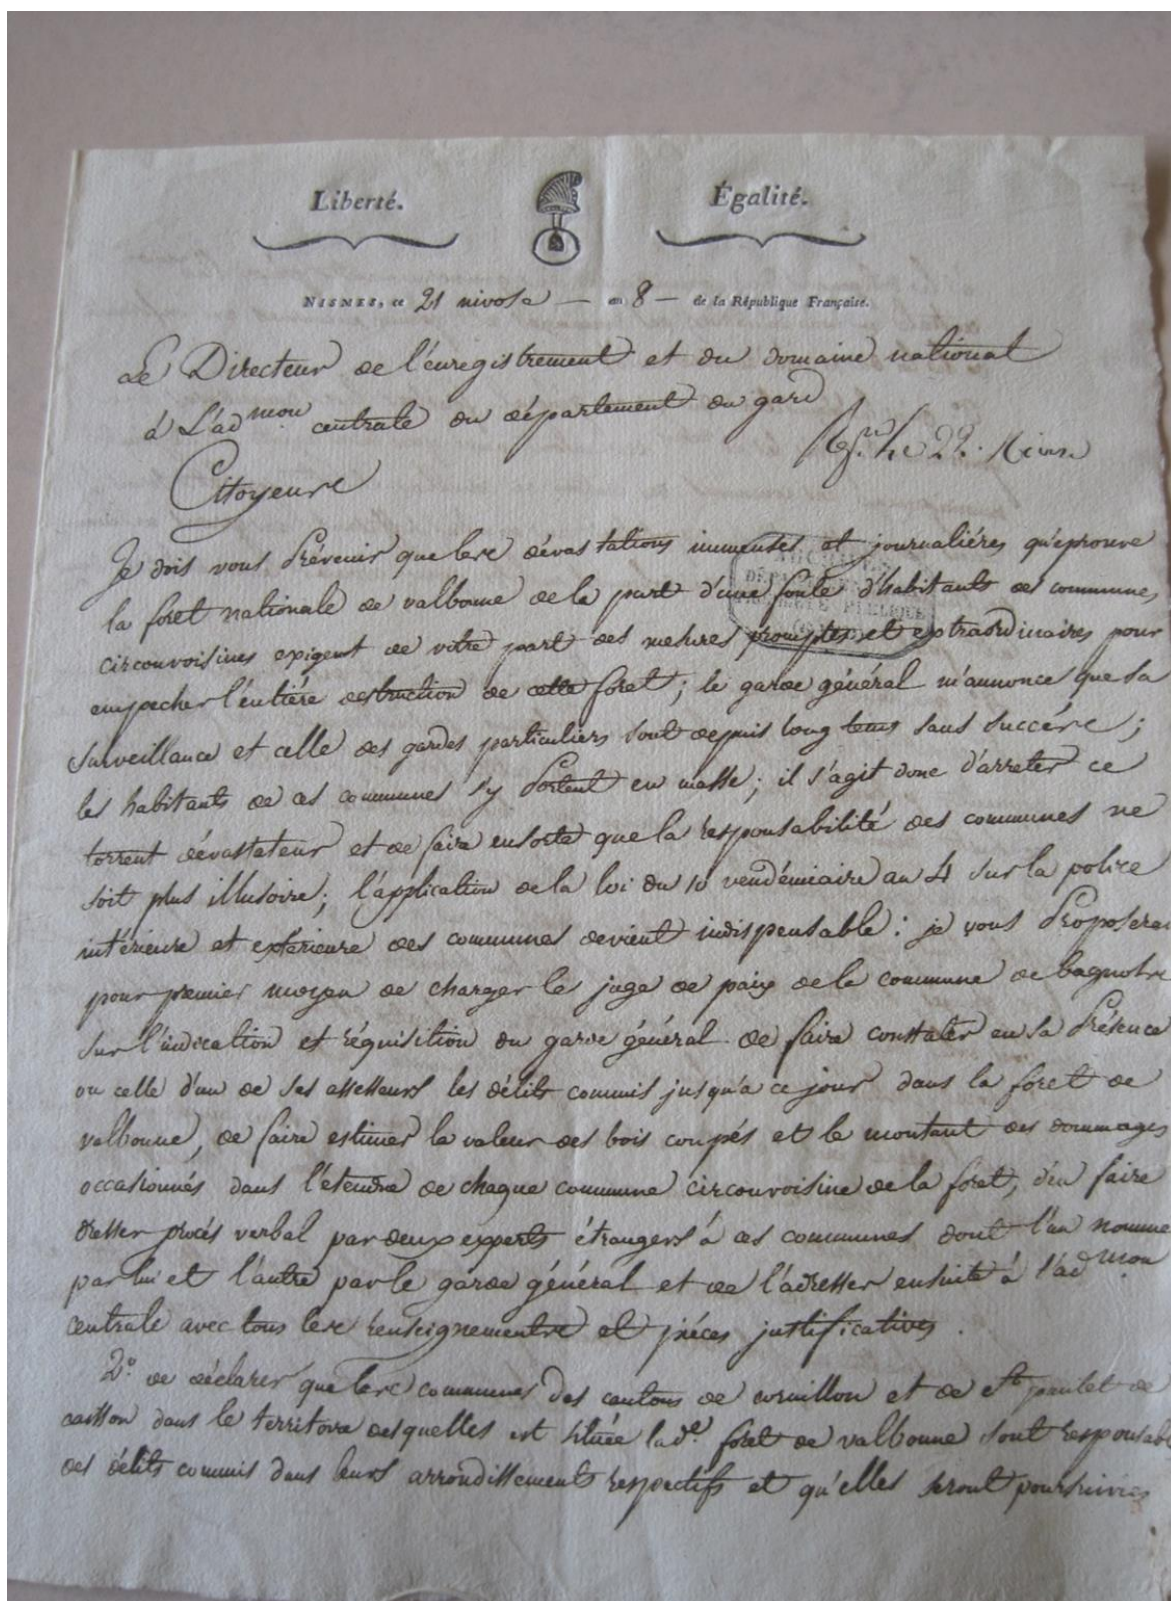 Liberté. Égalité.
NISMES, ce 21 nivose — an 8 — de la République Française.
Le Directeur de l'enregistrement et du domaine national
à L'ad^mon centrale du département du gard
le 22. Nivose
Citoyens
Je dois vous prévenir que les dévastations immenses et journalières qu'éprouve
la foret nationale de valbonne de la part d'une foule d'habitants des communes
circonvoisines exigent de votre part des mesures promptes et extraordinaires pour
empecher l'entière destruction de cette foret; le garde général m'annonce que sa
surveillance et celle des gardes particuliers sont depuis long tems sans succès;
les habitants de ces communes s'y portent en masse; il s'agit donc d'arreter ce
torrent dévastateur et de faire ensorte que la responsabilité des communes ne
soit plus illusoire; l'application de la loi du 10 vendémiaire an 4 sur la police
intérieure et extérieure des communes devient indispensable: je vous proposerai
pour premier moyen de charger le juge de paix de la commune de bagnols
sur l'indication et réquisition du garde général de faire constater en sa présence
ou celle d'un de ses assesseurs les délits commis jusqu'a ce jour dans la foret de
valbonne, de faire estimer la valeur des bois coupés et le montant des dommages
occasionnés dans l'étendue de chaque commune circonvoisine de la foret, d'en faire
dresser procés verbal par deux experts étrangers à ces communes dont l'un nommé
par lui et l'autre par le garde général et de l'adresser ensuite à l'ad^mon
centrale avec tous les renseignements et pièces justificatives.
2° de déclarer que les communes des cantons de cornillon et de st paulet de
caisson dans le territoire desquelles est située lad^e. foret de valbonne sont responsab
des délits commis dans leurs arrondissements respectifs et qu'elles seront poursuivies